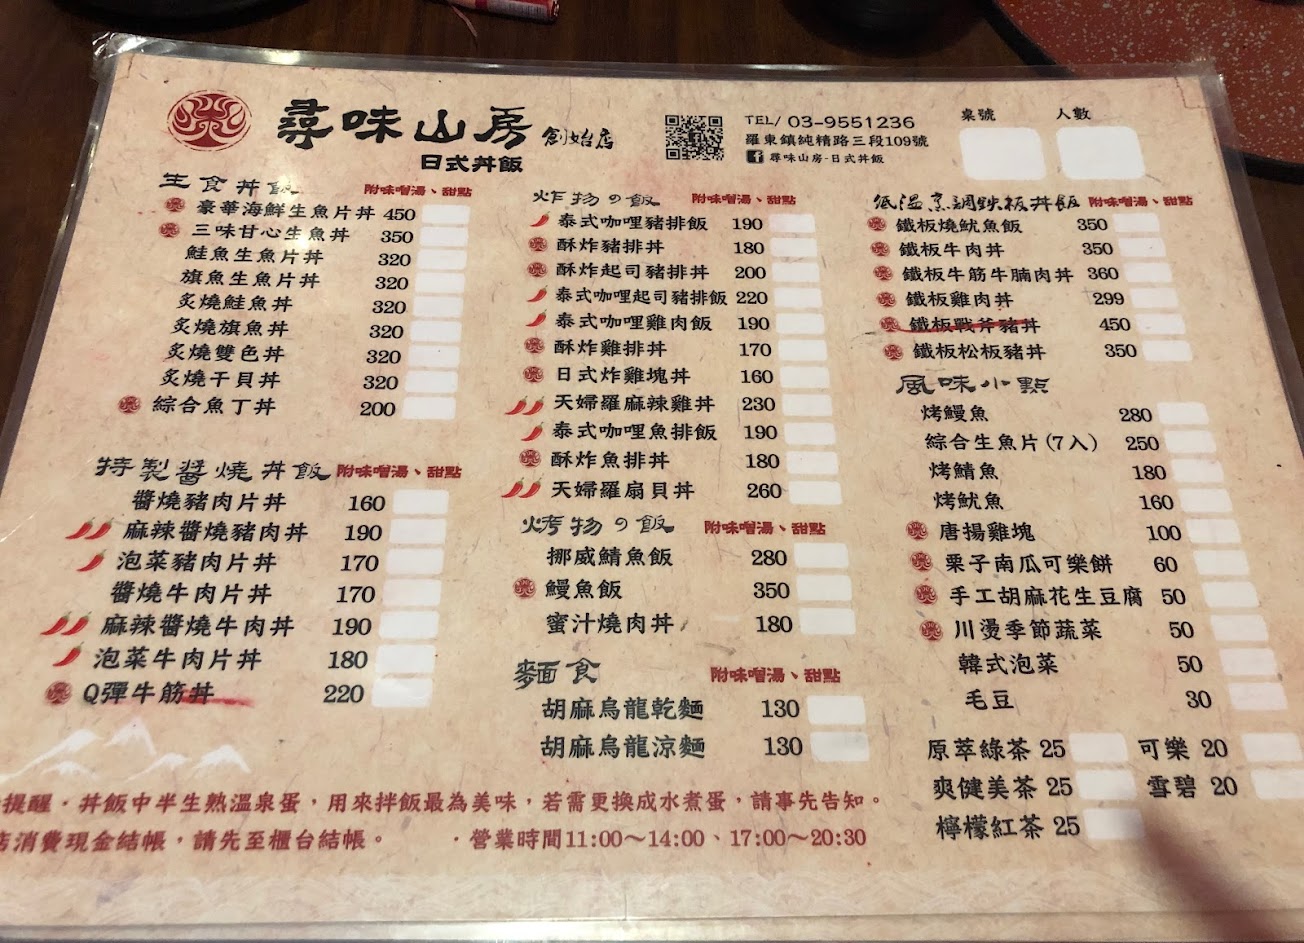 尋味山房 創始店
日式丼飯
TEL/ 03-9551236
羅東鎮純精路三段109號
尋味山房-日式丼飯
桌號 人數
生食丼飯 附味噌湯、甜點
豪華海鮮生魚片丼 450
三味甘心生魚丼 350
鮭魚生魚片丼 320
旗魚生魚片丼 320
炙燒鮭魚丼 320
炙燒旗魚丼 320
炙燒雙色丼 320
炙燒干貝丼 320
綜合魚丁丼 200
特製醬燒丼飯 附味噌湯、甜點
醬燒豬肉片丼 160
麻辣醬燒豬肉丼 190
泡菜豬肉片丼 170
醬燒牛肉片丼 170
麻辣醬燒牛肉丼 190
泡菜牛肉片丼 180
Q彈牛筋丼 220
炸物の飯 附味噌湯、甜點
泰式咖哩豬排飯 190
酥炸豬排丼 180
酥炸起司豬排丼 200
泰式咖哩起司豬排飯 220
泰式咖哩雞肉飯 190
酥炸雞排丼 170
日式炸雞塊丼 160
天婦羅麻辣雞丼 230
泰式咖哩魚排飯 190
酥炸魚排丼 180
天婦羅扇貝丼 260
烤物の飯 附味噌湯、甜點
挪威鯖魚飯 280
鰻魚飯 350
蜜汁燒肉丼 180
麵食 附味噌湯、甜點
胡麻烏龍乾麵 130
胡麻烏龍涼麵 130
低溫烹調鐵板丼飯 附味噌湯、甜點
鐵板燒魷魚飯 350
鐵板牛肉丼 350
鐵板牛筋牛腩肉丼 360
鐵板雞肉丼 299
鐵板戰斧豬丼 450
鐵板松板豬丼 350
風味小點
烤鰻魚 280
綜合生魚片(7入) 250
烤鯖魚 180
烤魷魚 160
唐揚雞塊 100
栗子南瓜可樂餅 60
手工胡麻花生豆腐 50
川燙季節蔬菜 50
韓式泡菜 50
毛豆 30
原萃綠茶 25 可樂 20
爽健美茶 25 雪碧 20
檸檬紅茶 25
提醒・丼飯中半生熟溫泉蛋，用來拌飯最為美味，若需更換成水煮蛋，請事先告知。
店消費現金結帳，請先至櫃台結帳。 ・營業時間11:00～14:00、17:00～20:30